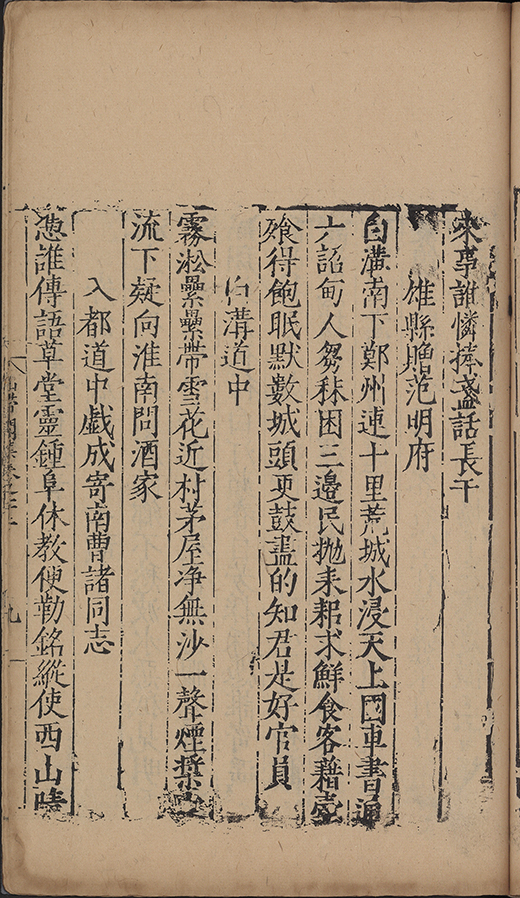 來事誰憐捧盞話長干
雄縣贈范明府
白溝南下鄭州連十里荒城水浸天上國車書通
六詔甸人芻秣困三邊民拋耒耜求鮮食客藉壺
飧得飽眠默數城頭更鼓盡的知君是好官員
白溝道中
霧淞纍纍帶雪花近村茅屋净無沙一聲煙槳
流下疑向淮南問酒家
入都道中戲成寄南曹諸同志
憑誰傳語草堂靈鍾阜休教便勒銘縱使西山晴
九